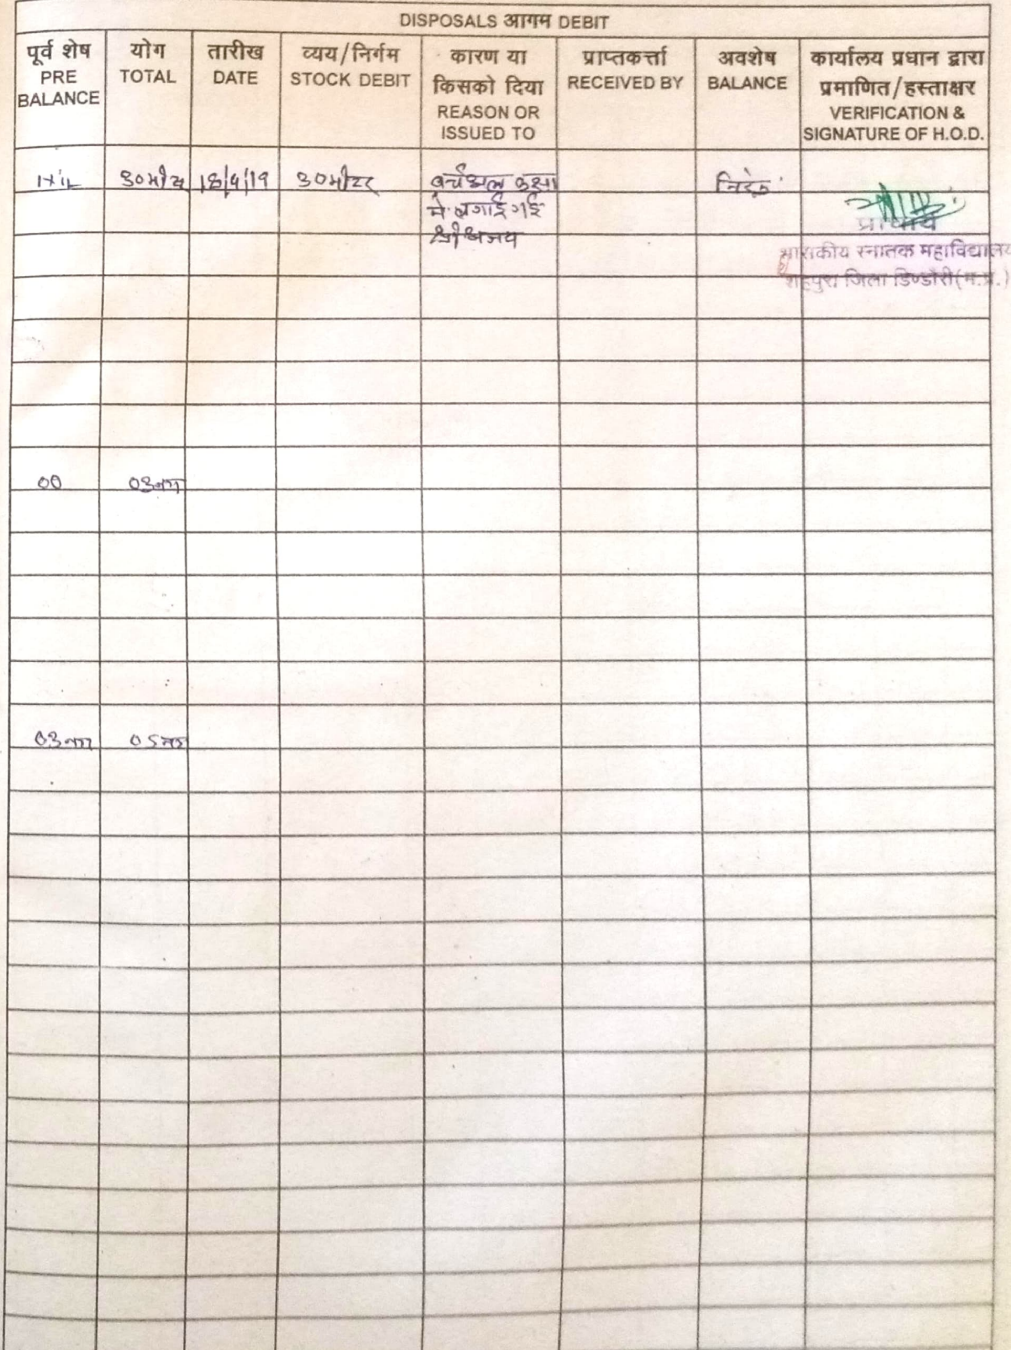 DISPOSALS आगम DEBIT
पूर्व शेष
PRE
BALANCE
योग
TOTAL
तारीख
DATE
व्यय/निर्गम
STOCK DEBIT
कारण या
किसको दिया
REASON OR
ISSUED TO
प्राप्तकर्त्ता
RECEIVED BY
अवशेष
BALANCE
कार्यालय प्रधान द्वारा
प्रमाणित/हस्ताक्षर
VERIFICATION &
SIGNATURE OF H.O.D.
30मीटर
वर्चुअल कक्षा
मे लगाई गई
श्री अजय
प्राचार्य
शासकीय स्नातक महाविद्यालय
शहपुरा जिला डिण्डौरी(म.प्र.)
00 03नग
03नग 05नग